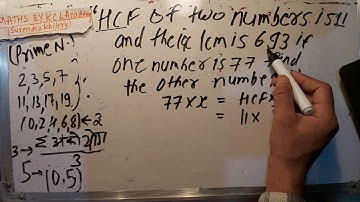 MATHS BY K.C.L Academy
(Surendra khilery)
"HCF of two numbers is 11
and their lcm is 693 if
one number is 77 find
the other number
77 × x = HCF ×
= 11 ×
(Prime N.)
2, 3, 5, 7
11, 13, 17, 19.
(0, 2, 4, 6, 8) ← 2
3 →
3
5 → (0, 5)